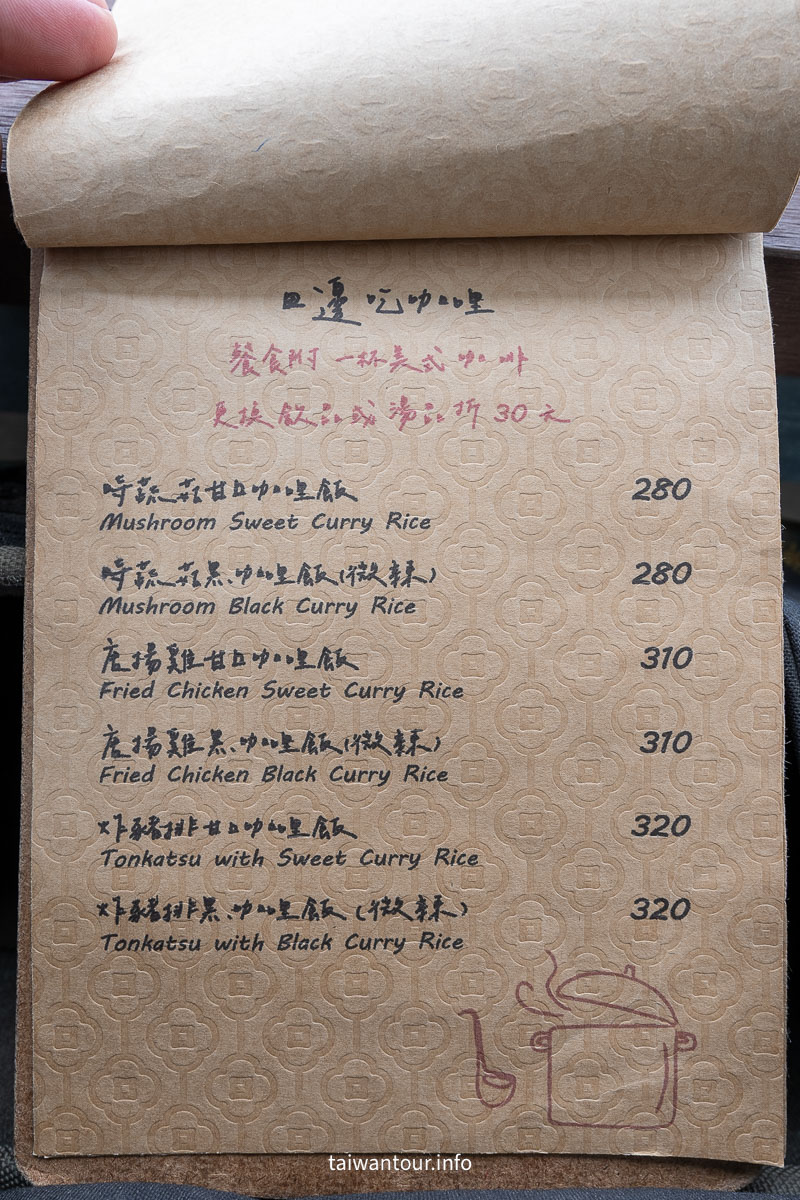 田邊吃咖哩
餐食附 一杯美式咖啡
更換飲品或湯品折30元
時蔬菇甘口咖哩飯 280
Mushroom Sweet Curry Rice
時蔬菇黑咖哩飯(微辣) 280
Mushroom Black Curry Rice
唐揚雞甘口咖哩飯 310
Fried Chicken Sweet Curry Rice
唐揚雞黑咖哩飯(微辣) 310
Fried Chicken Black Curry Rice
炸豬排甘口咖哩飯 320
Tonkatsu with Sweet Curry Rice
炸豬排黑咖哩飯(微辣) 320
Tonkatsu with Black Curry Rice
taiwantour.info